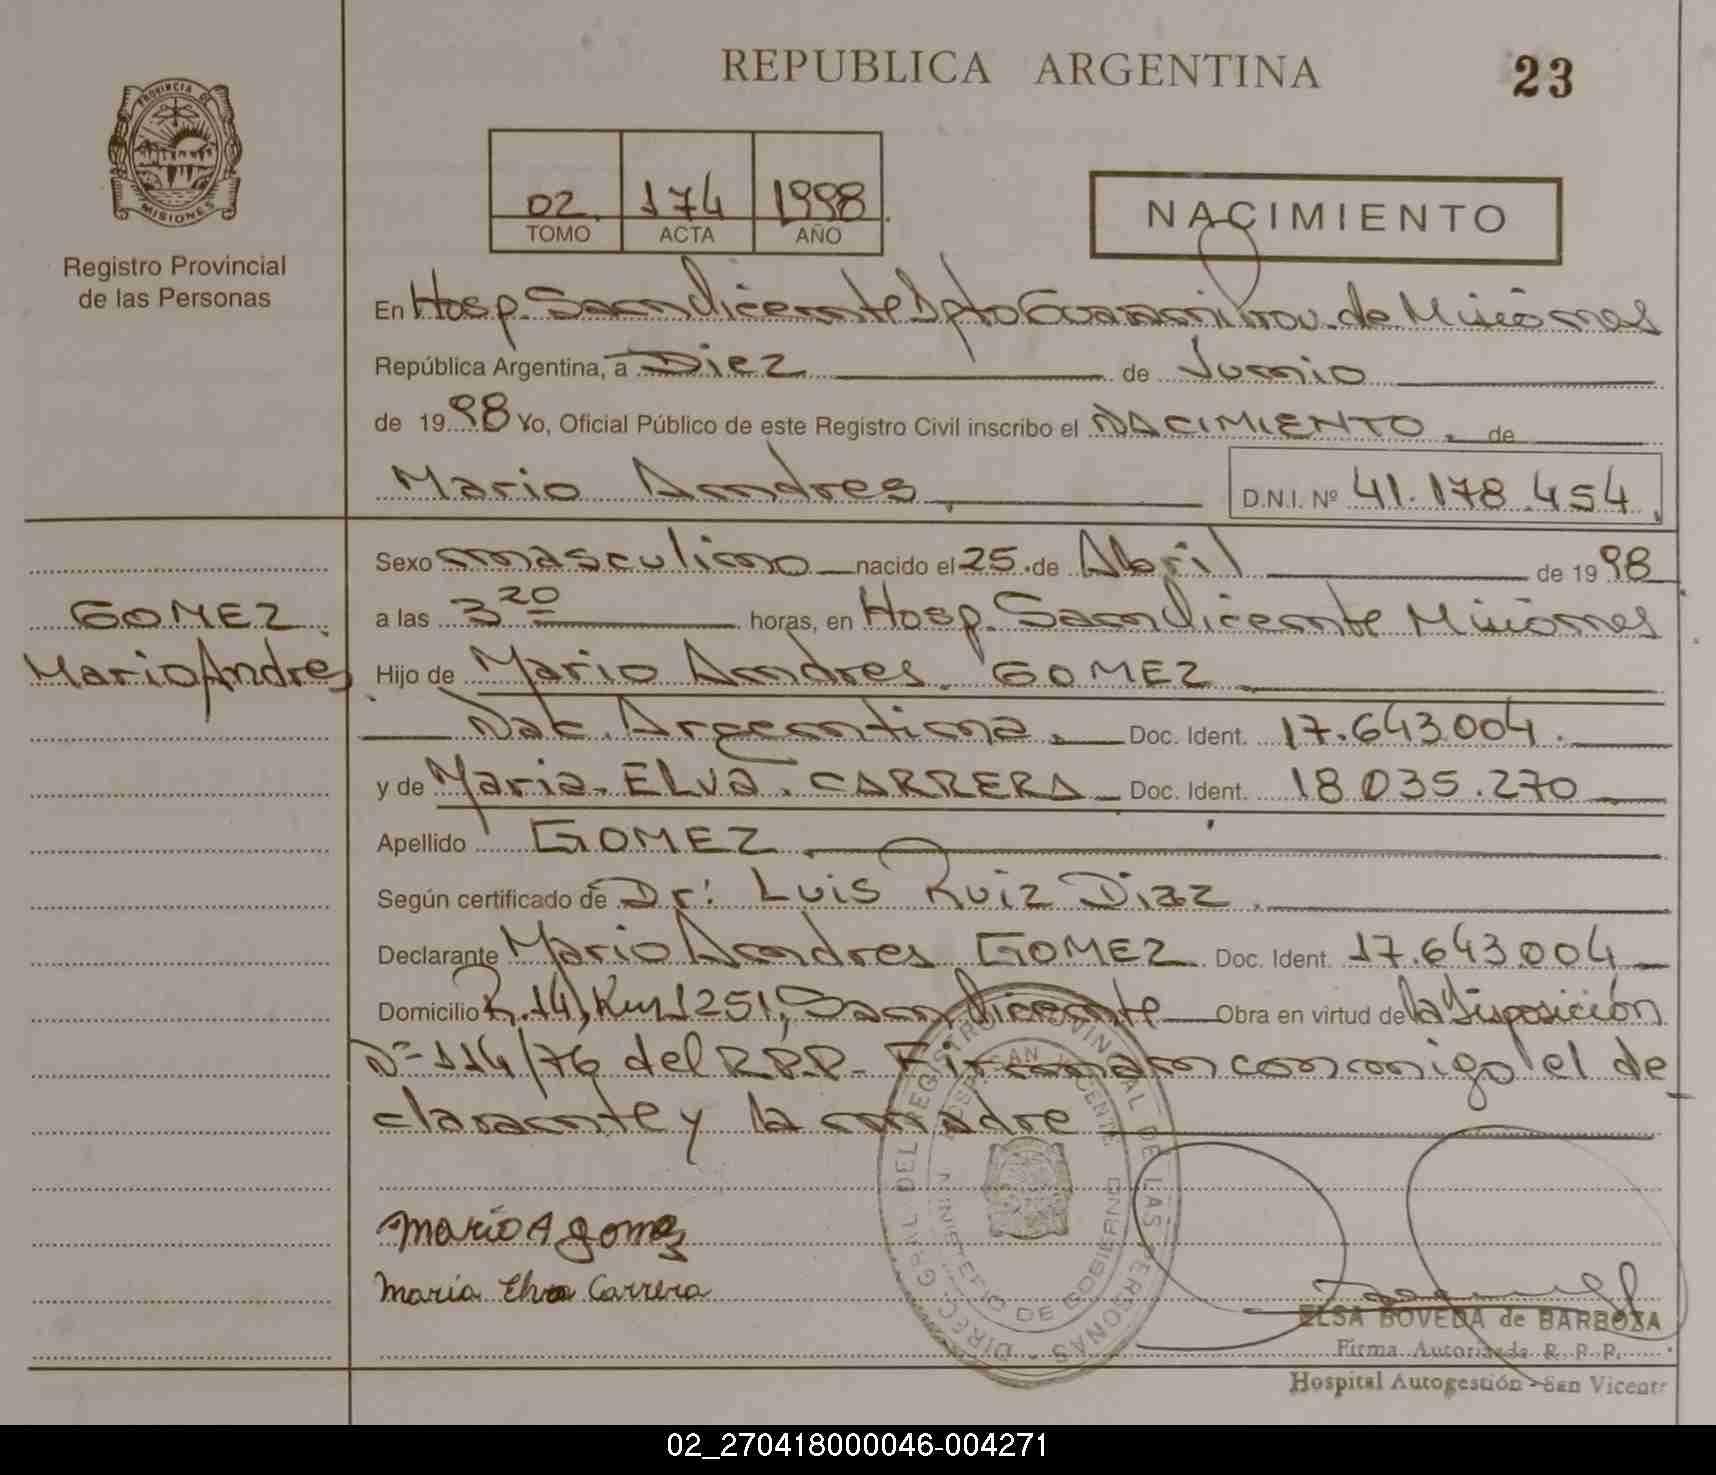 REPUBLICA ARGENTINA
23
PROVINCIA DE
MISIONES
Registro Provincial
de las Personas
02 174 1998
TOMO ACTA AÑO
NACIMIENTO
En Hosp. San Vicente Dpto Guarani Prov. de Misiones
República Argentina, a Diez de Junio
de 1998 Yo, Oficial Público de este Registro Civil inscribo el NACIMIENTO. de
Mario Andres D.N.I. Nº 41.178.454
Sexo masculino nacido el 25 de Abril de 1998
GOMEZ
a las 3 20 horas, en Hosp. San Vicente Misiones
Mario Andres
Hijo de Mario Andres GOMEZ
Nac. Argentina. Doc. Ident. 17.643.004.
y de Maria ELVA CARRERA Doc. Ident. 18.035.270
Apellido GOMEZ
Según certificado de Dr: Luis Ruiz Diaz
Declarante Mario Andres GOMEZ Doc. Ident. 17.643.004
Domicilio R.14, Km 1251, San Vicente Obra en virtud de la Disposición
Nº 114/76 del R.P.P. Firman conmigo el de
clarante y la madre
Mario A gomez
Maria Elva Carrera
DIREC. GRAL. DEL REGISTRO PROVINCIAL DE LAS PERSONAS
HOSP. SAN VICENTE
MINISTERIO DE GOBIERNO
ELSA BOVEDA de BARBOZA
Firma Autorizada R. P. P.
Hospital Autogestión - San Vicente
02_270418000046-004271